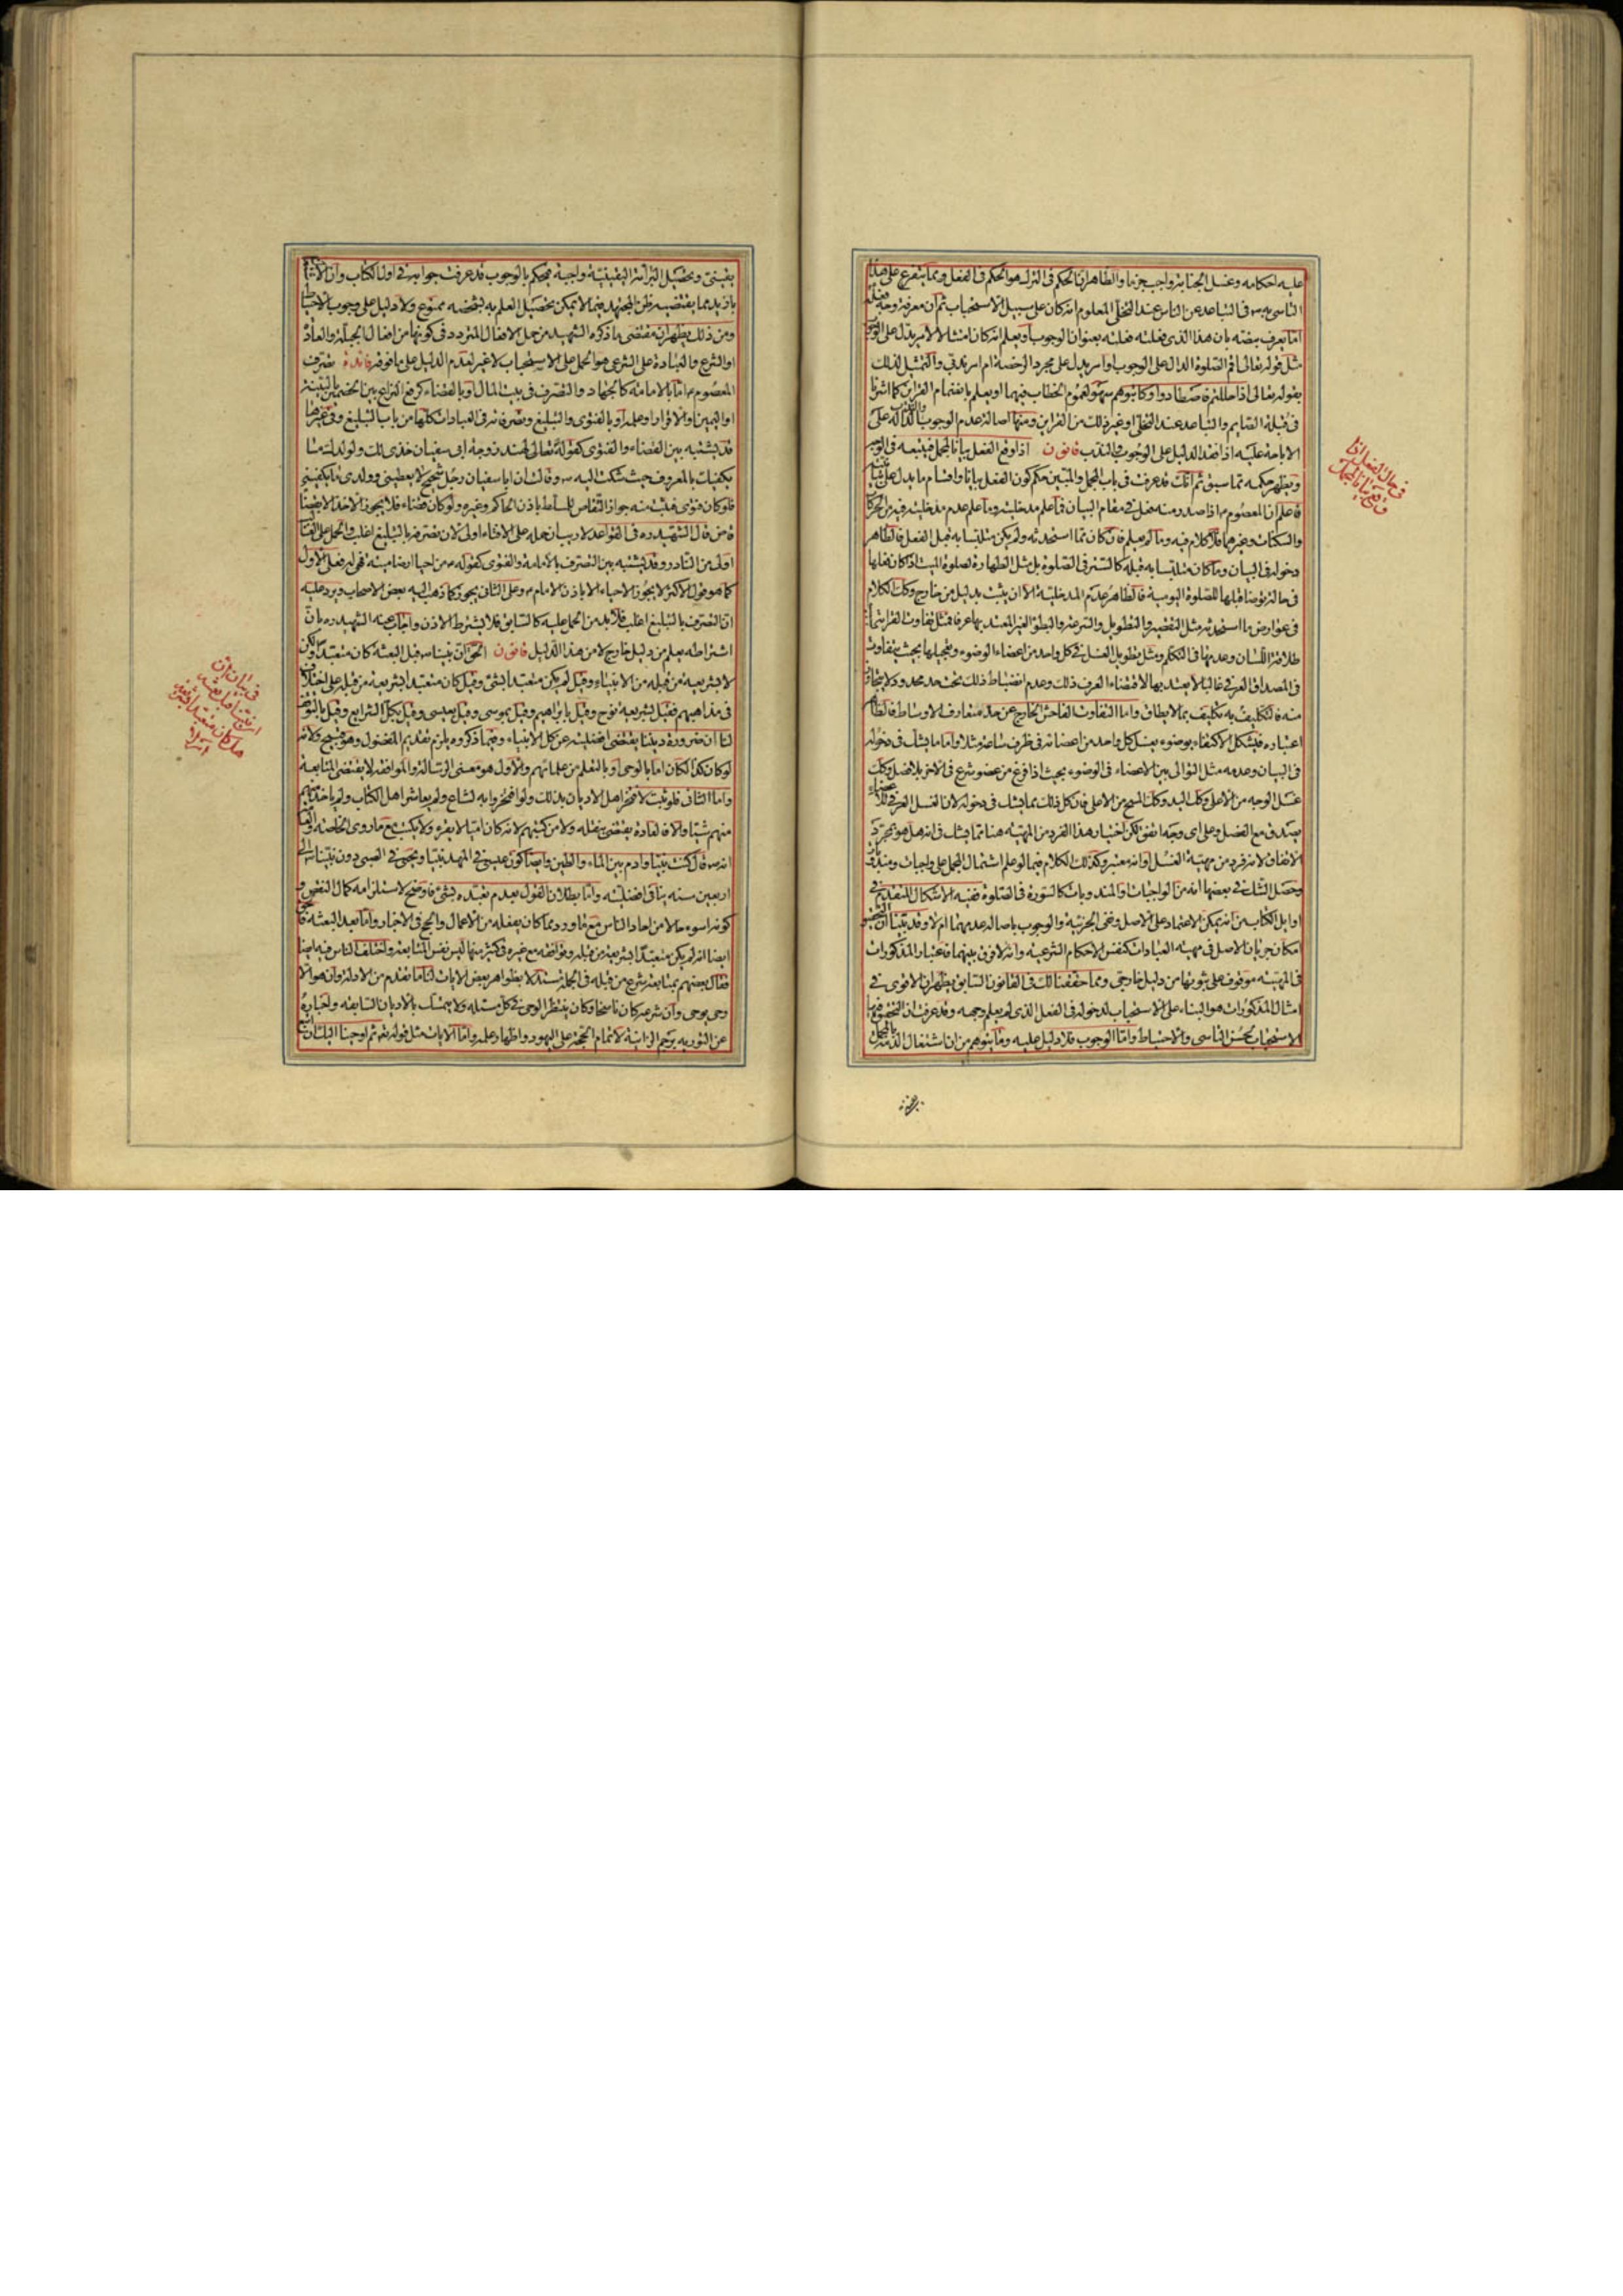 عليه احكامه وغسل الجنابة واجب جزما والظاهر ان الحكم فى الترك هو الحكم فى الفعل ومما يتفرع على هذا
التاسى به ص فى التباعد عن الناس عند التخلى المعلوم انه كان على سبيل الاستحباب ثم ان معرفة وجه فعله
اما يعرف بنصه بان هذا الذى فعلته فعلته بعنوان الوجوب او يعلم انه كان امتثالا لامر يدل على الوجوب
مثل قوله تعالى اقم الصلوة الدال على الوجوب او امر يدل على مجرد الرخصة ام امر ندبى والتمثيل لذلك
بقوله تعالى اذا حللتم فاصطادوا وكاتبوهم سهو لعموم الخطاب فيهما او يعلم بانضمام القراين كما اشرنا
فى قبلة الصايم والتباعد عند التخلى او غير ذلك من القراين ومنها اصالة عدم الوجوب والندب الدالة على
الاباحة عليه اذا فقد الدليل على الوجوب والندب قانون اذا وقع الفعل بيانا لمجمل فيتبعه فى الوجه
ويظهر حكمه مما سبق ثم انك قد عرفت فى باب المجمل والمبين حكم كون الفعل بيانا واقسام ما يدل على بيانيته
فاعلم ان المعصوم ع اذا صدر منه فعل فى مقام البيان فما علم مدخليته وما علم عدم مدخليته فيه من الحركات
والسكنات وغيرهما فلا كلام فيه وما لم يعلم فان كان مما استحدثه ولم يكن متلبسا به قبل الفعل فالظاهر
دخوله فى البيان وما كان متلبسا به قبله كالستر فى الصلوة بل مثل الطهارة لصلوة الميت اذا كان فعلها
فى حالة توضأ قبلها للصلوة اليومية فالظاهر عدم المدخلية الا ان يثبت بدليل من خارج وكذلك الكلام
فى عوارض ما استحدثه مثل التقصير والتطويل والسرعة والبطؤ الغير المعتد بها عرفا فمثل تفاوت القرائة
طلاقة اللسان وعدمها فى التكلم ومثل تطويل الغسل فى كل واحد من اعضاء الوضوء وتعجيلها بحيث يتفاوت
فى المصداق العرفى غالبا لا يعتد بها لاقتضاء العرف ذلك وعدم انضباط ذلك تحت حد محدود لا يتجاوز
منه فالتكليف به تكليف بما لا يطاق واما التفاوت الفاحش الخارج عن حد متعارف الاوساط فالظاهر
اعتباره فيشكل الاكتفاء بوضوء يغسل كل واحد من اعضائه فى ظرف ساعة مثلا واما ما يشك فى دخوله
فى البيان وعدمه مثل التوالى بين الاعضاء فى الوضوء بحيث اذا فرغ من عضو شرع فى الاخر بلا فصل وكذلك
غسل الوجه من الاعلى وكذلك اليد وكذلك المسح من الاعلى فان كل ذلك مما يشك فى دخوله لان الغسل العرفى لتلك
يصدق مع الفصل وعلى اى وجه اتفق لكن اختيار هذا الفرد من المهية هنا مما يشك فى انه هل هو بمجرد
الاتفاق لانه فرد من مهية الغسل او انه معتبر وكذلك الكلام فيما لو علم اشتمال المجمل على واجبات ومندوبات
وحصل الشك فى بعضها انه من الواجبات او المندوبات كالسورة فى الصلوة ففيه الاشكال المتقدم فى
اوايل الكتاب من انه يمكن الاعتماد على الاصل ونفى الجزئية والوجوب باصالة عدمهما ام لا وقد بينا ان التحقيق
امكان جريان الاصل فى مهية العبادات كنفس الاحكام الشرعية وانه لا فرق بينهما فاعتبار المذكورات
فى المهية موقوف على ثبوتها من دليل خارجى ومما حققنا لك فى القانون السابق يظهر ان الاقوى فى
امثال المذكورات هو البناء على الاستحباب لدخوله فى الفعل الذى لم يعلم وجهه وقد عرفت ان التحقيق فيها
الاستحباب لحسن التاسى والاحتياط واما الوجوب فلا دليل عليه وما يتوهم من ان اشتغال الذمة بالمجمل
فى حال الفعل اذا
وقع بيانا لمجمل
يقينى وتحصيل البرائة اليقينية واجبة فيحكم بالوجوب قد عرفت جوابه فى اول الكتاب وان الاشتغال
بازيد مما يقتضيه ظن المجتهد فيما لا يمكن تحصيل العلم به بشخصه ممنوع ولا دليل على وجوب الاحتياط
ومن ذلك يظهر ان مقتضى ما ذكره الشهيد من حمل الافعال المتردد فى كونها من افعال الجبلة والعادة
او الشرع والعبادة على الشرعى هو الحمل على الاستحباب لا غير لعدم الدليل على ما فوقه فائدة تصرف
المعصوم ع اما بالامامة كالجهاد والتصرف فى بيت المال او بالقضاء كرفع النزاع بين الخصمين بالبينة
او اليمين او الاقرار او علمه او بالفتوى والتبليغ وتصرفاته فى العبادات كلها من باب التبليغ وفى غيرها
قد يشتبه بين القضاء والفتوى كقوله تعالى لهند زوجة ابى سفيان خذى لك ولولدك ما
يكفيك بالمعروف حيث شكت اليه ص وقالت ان ابا سفيان رجل شحيح لا يعطينى وولدى ما يكفينى
فلو كان فتوى فيثبت منه جواز التقاص للمسلط باذن الحاكم وغيره ولو كان قضاء فلا يجوز الاخذ الا بقضاء
قاض قال الشهيد ره فى القواعد لا ريب ان حمله على الافتاء اولى لان تصرفه بالتبليغ اغلب والحمل على الغالب
اولى من النادر وقد يشتبه بين التصرف بالامامة والفتوى كقوله ص من احيا ارضا ميتة فهى له فعلى الاول
كما هو قول الاكثر لا يجوز الاحياء الا باذن الامام ع وعلى الثانى يجوز كما ذهب اليه بعض الاصحاب ويرد عليه
ان التصرف بالتبليغ اغلب فلا بد من الحمل عليه كالسابق فلا يشترط الاذن واجاب عنه الشهيد ره بان
اشتراطه يعلم من دليل خارج لا من هذا الدليل قانون الحق ان نبينا ص قبل البعثة كان متعبدا ولكن
لا بشريعة من قبله من الانبياء وقيل لم يكن متعبدا بشئ وقيل كان متعبدا بشريعة من قبله على اختلاف
فى مذاهبهم فقيل بشريعة نوح وقيل بابراهيم وقيل بموسى وقيل بعيسى وقيل بكل الشرايع وقيل بالتوقف
لنا ان ضرورة ديننا يقتضى افضليته عن كل الانبياء وفيما ذكروه يلزم تقديم المفضول وهو قبيح ولانه
لو كان كذا لكان اما بالوحى او بالتعلم من علمائهم والاول هو معنى الرسالة والموافقة لا يقتضى المتابعة
واما الثانى فلو ثبت لافتخر اهل الاديان بذلك ولو افتخروا به لشاع ولم يعاشر اهل الكتاب ولم ياخذ منهم
منهم شيئا والا فالعادة يقتضى بنقله ولا من كتبهم لانه كان اميا لا يقرء ولا يكتب مع ما روى الخاصة والعامة
انه ص قال كنت نبيا وادم بين الماء والطين وايضا كون عيسى فى المهد نبيا ويحيى فى الصبى دون نبينا ص الى
اربعين سنة ينافى افضليته واما بطلان القول بعدم تعبده بشئ فاوضح لاستلزامه كمال النقص و
كونه اسوء حالا من احاد الناس مع ما ورد مما كان يفعله من الاعمال والحج فى الاخبار واما بعد البعثة فالحق
ايضا انه لم يكن متعبدا بشريعة من قبله وتوافقه مع غيره فى كثير منها ليس نفس المتابعة واختلف الناس فيه ايضا
فقال بعضهم بمتابعته شرع من قبله فى الجملة مستدلا بظواهر بعض الايات لنا ما تقدم من الادلة وان هو الا
وحى يوحى وان شرعه كان ناسخا وكان ينتظر الوحى فى كل مسئلة ولا يتمسك بالاديان السابقة واخباره
عن التورية برجم الزانية لاتمام الحجة على اليهود واظهار علمه واما الايات مثل قوله تع ثم اوحينا اليك ان اتبع
فى بيان ان
نبينا قبل بعثته
هل كان متعبدا بشريعة
ام لا